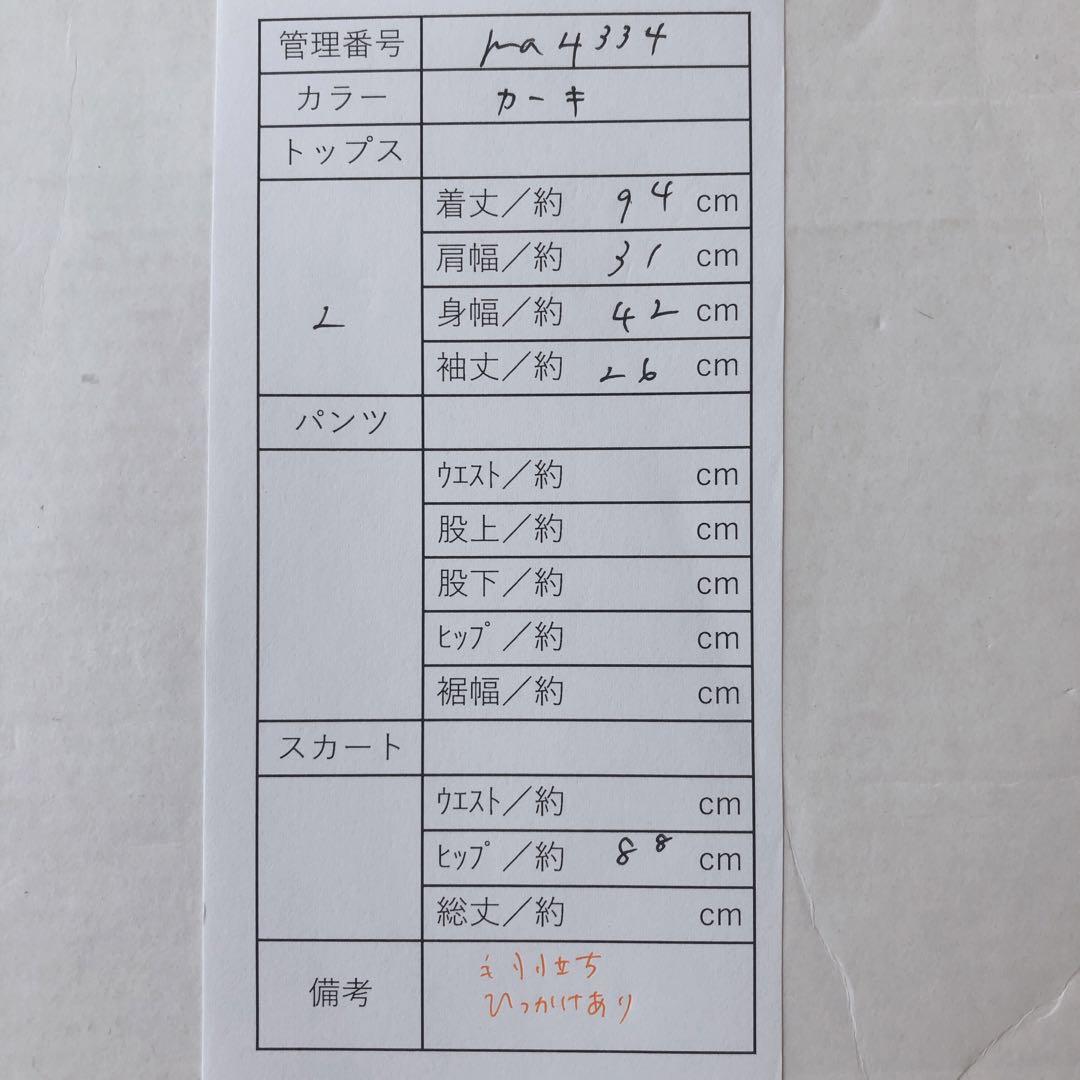 管理番号 ma4334
カラー カーキ
トップス
着丈／約 94 cm
肩幅／約 31 cm
L 身幅／約 42 cm
袖丈／約 26 cm
パンツ
ｳｴｽﾄ／約 cm
股上／約 cm
股下／約 cm
ﾋｯﾌﾟ／約 cm
裾幅／約 cm
スカート
ｳｴｽﾄ／約 cm
ﾋｯﾌﾟ／約 88 cm
総丈／約 cm
備考 立ち
ひっかけあり